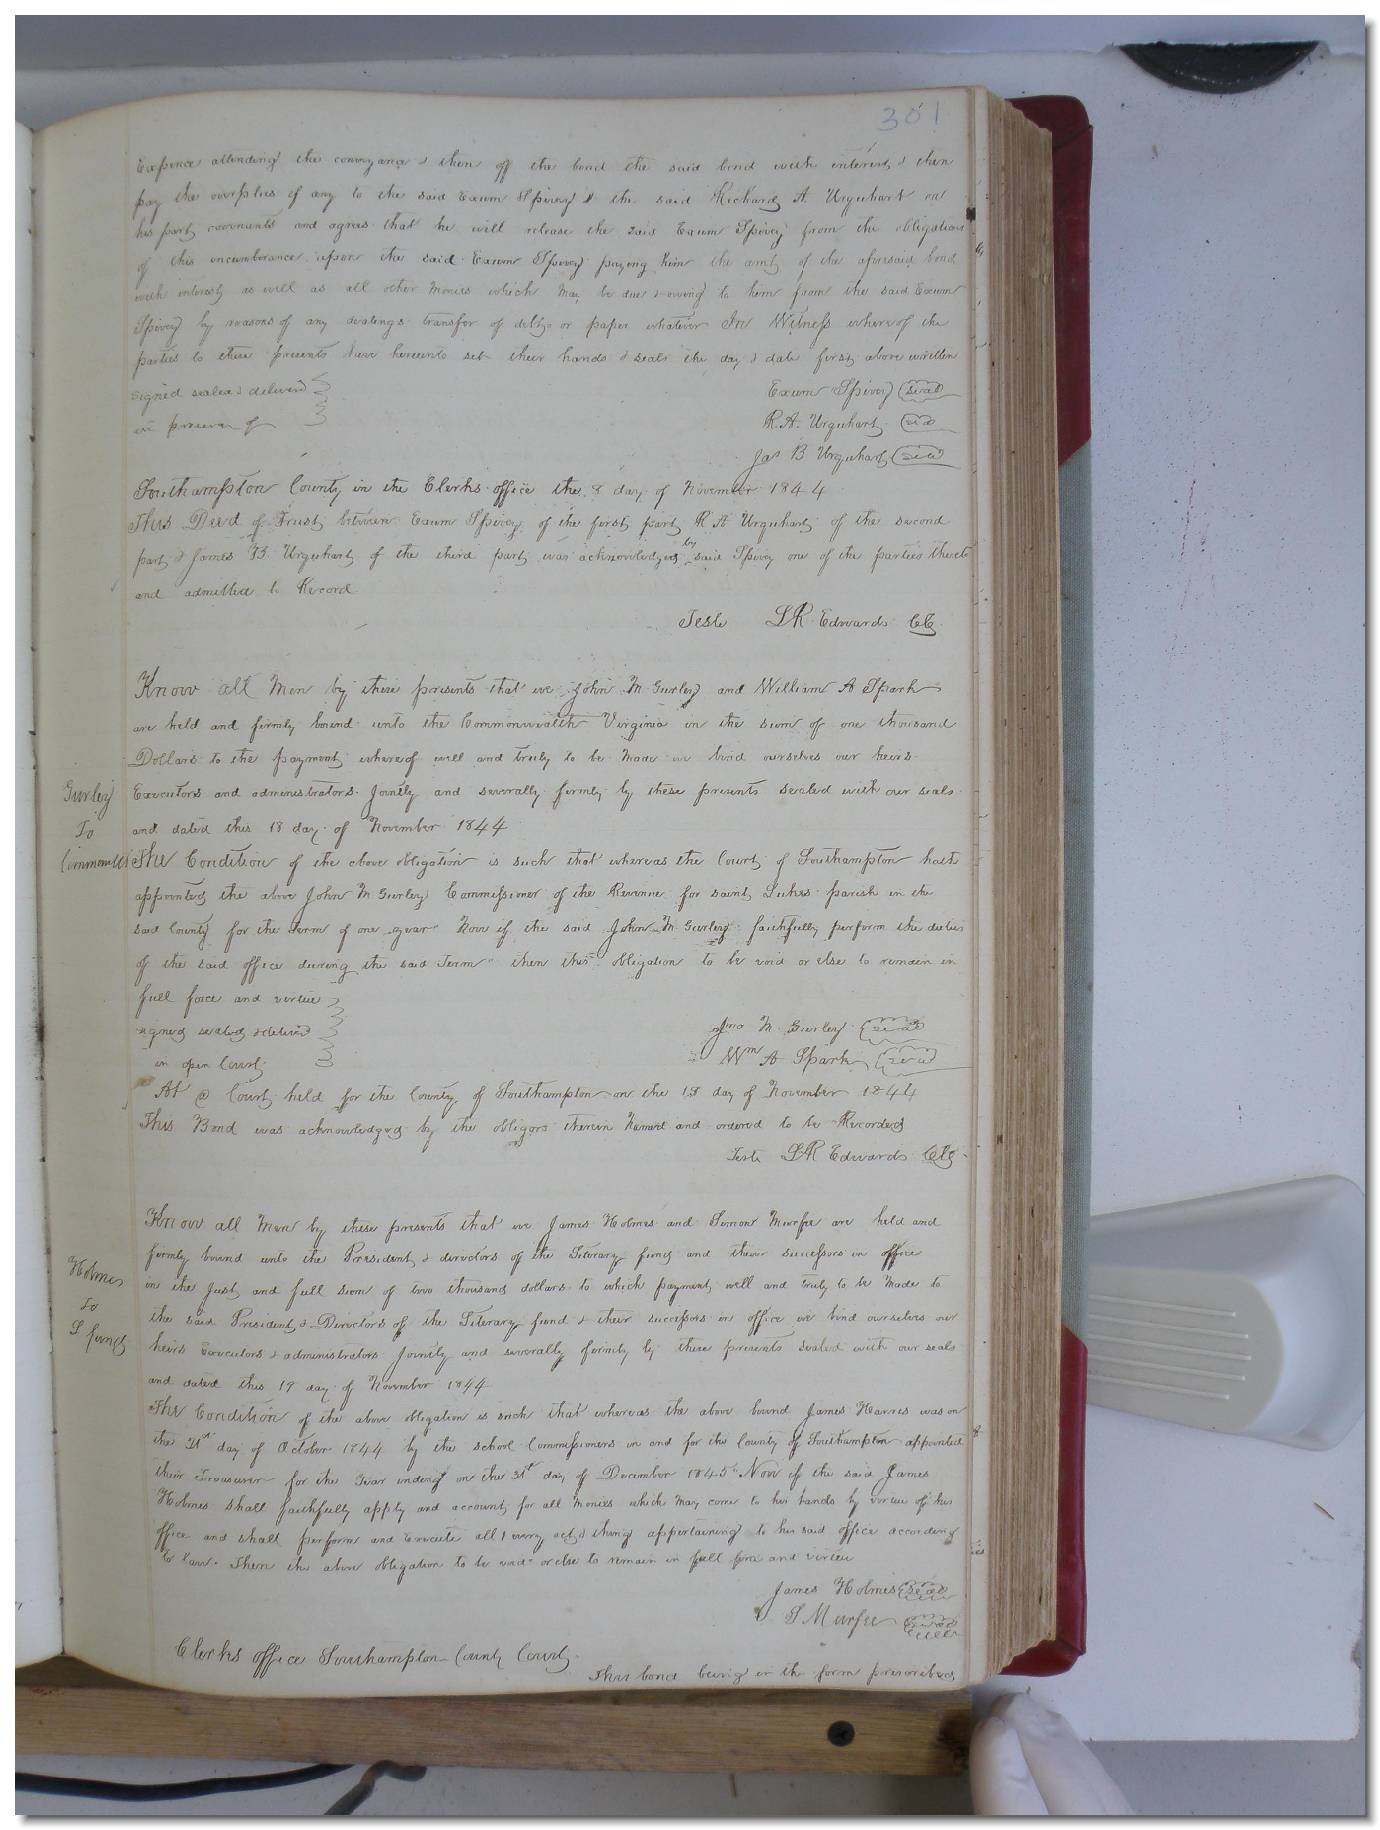 301
Expence attending the conveyance & then off the bond the said bond with interest, & then
pay the overplus if any to the said Exum Spivey & the said Richard A Urquhart on
his part covenants and agrees that he will release the said Exum Spivey from the obligation
of this incumberance upon the said Exum Spivey paying him the amt of the aforesaid bond
with interest as well as all other monies which may be due & owing to him from the said Exum
Spivey by reasons of any dealings transfer of debts or paper whatever In Witness whereof the
parties to these presents have hereunto set their hands & seals the day & date first above written
Signed sealed & deliverd
in presence of
Exum Spivey seal
R. A. Urquhart seal
Jas B Urquhart seal
Southampton County in the Clerks office the 8 day of November 1844
This Deed of Trust between Exum Spivey of the first part R A Urquhart of the second
part & James B Urquhart of the third part was acknowledged by said Spivey one of the parties thereto
and admitted to Record
Teste L R Edwards CC
Know all Men by these presents that we John M Gurley and William A Spark
are held and firmly bound unto the Commonwealth Virginia in the sum of one thousand
Dollars to the payment whereof well and truly to be made we bind ourselves our heirs
Gurley
To
Commonwlth
Executors and administrators Jointly and severally firmly by these presents sealed with our seals
and dated this 18 day of November 1844
The Condition of the above obligation is such that whereas the Court of Southampton hath
appointed the above John M Gurley Commissioner of the Revenue for saint Lukes parish in the
said County for the term of one year Now if the said John M. Gurley faithfully perform the duties
of the said office during the said Term then this obligation to be void or else to remain in
full force and virtue
signed sealed & deliverd
in open Court
Jno M. Gurley seal
Wm A Spark seal
At @ Court held for the County of Southampton on the 18 day of November 1844
This Bond was acknowledged by the obligors therein Named and ordered to be Recorded
Teste L R Edwards CC
Know all Men by these presents that we James Holmes and Simon Murfee are held and
firmly bound unto the President & directors of the Literary fund and their successors in office
Holmes
To
L fund
in the Just and full sum of two thousand dollars to which payment well and truly to be made to
the said President & Directors of the Literary fund & their successors in office we bind ourselves our
heirs Executors & administrators Jointly and severally firmly by these presents sealed with our seals
and dated this 19 day of November 1844
The Condition of the above obligation is such that whereas the above bound James Harris was on
the 21st day of October 1844 by the school Commissioners in and for the County of Southampton appointed
their Treasurer for the Year ending on the 31st day of December 1845 Now if the said James
Holmes shall faithfully apply and account for all Monies which may come to his hands by virtue of his
office and shall perform and Execute all & every act & thing appertaining to his said office according
to law. Then the above obligation to be void or else to remain in full force and virtue
James Holmes seal
S Murfee seal
Clerks office Southampton County Court
This bond being in the form prescribed